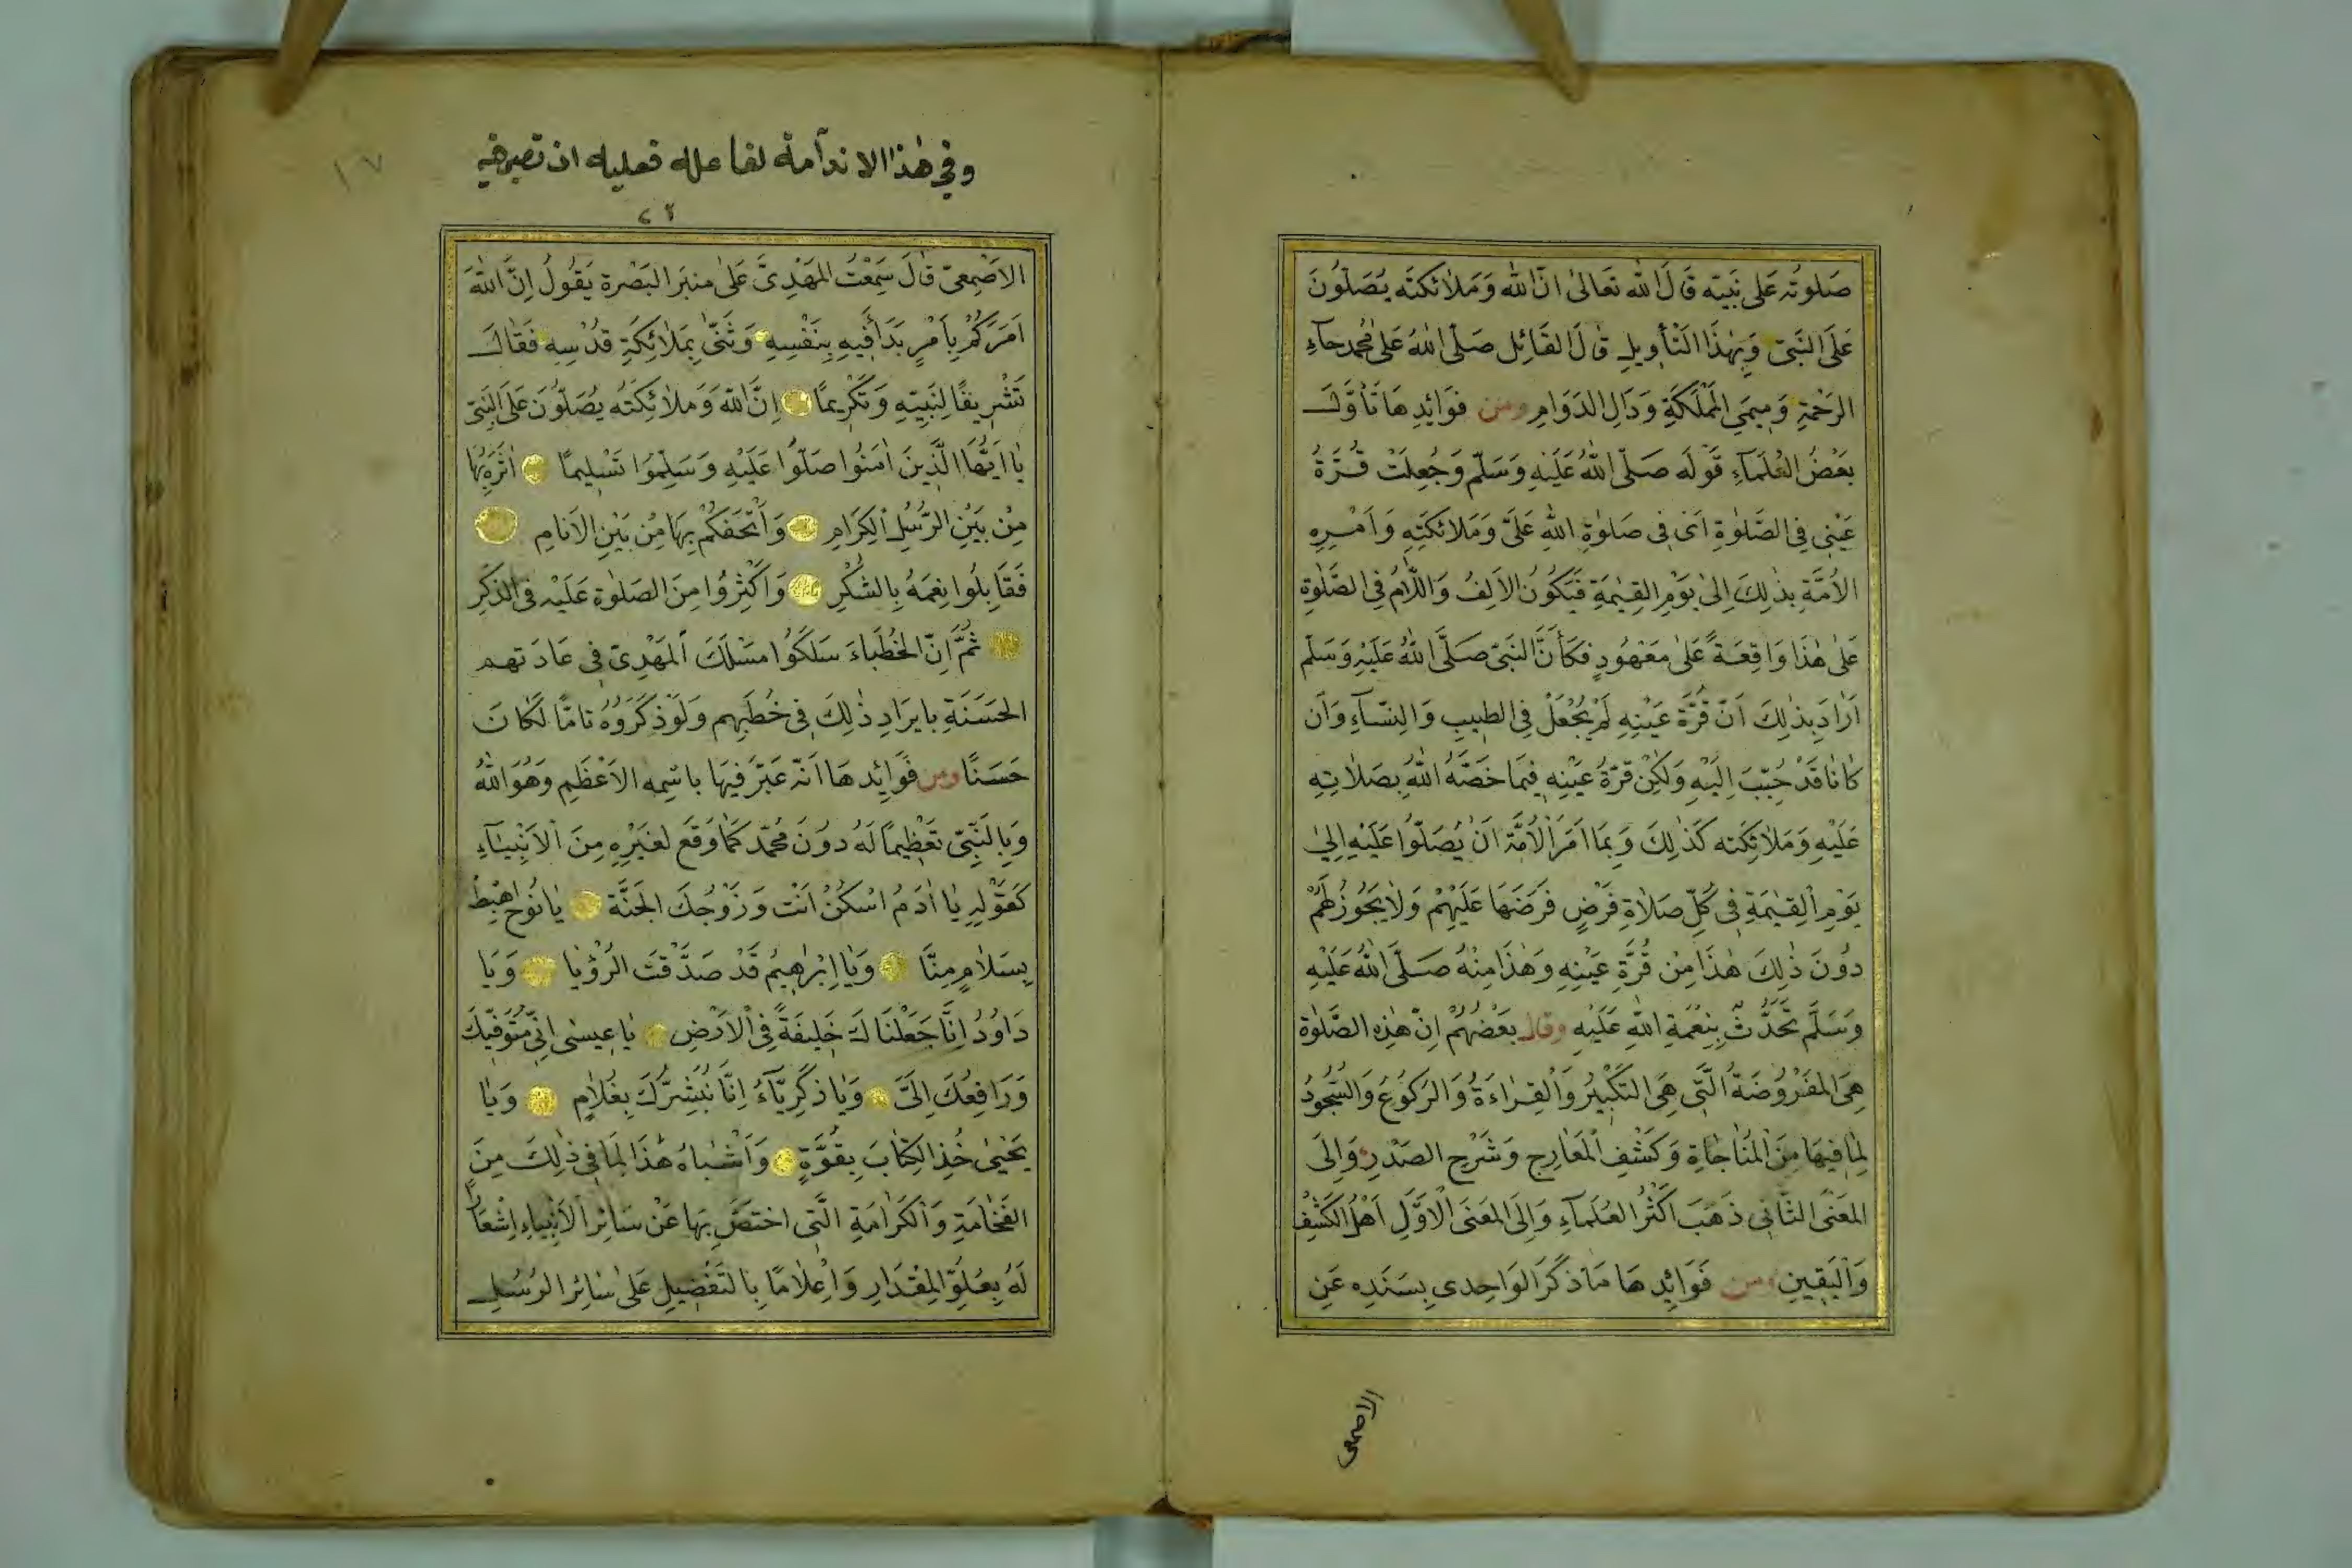 صَلوتُه عَلى نَبيّه قَالَ الله تَعَالىٰ انّ الله وَمَلائكتَه يُصَلّونَ
عَلَى النَبيّ وَبِهٰذَا التَأويلِ قالَ القَائِل صَلّى اللهُ عَلىٰ محُمد حآءِ
الرَحْمةِ وَمِيمَيِ المَمْلَكَةِ وَدَالِ الدَوَامِ ومن فوَائِدِهَا تَأوَّلَ
بعَضُ العُلَمآءِ قَولَه صَلّى اللهُ عَلَيْهِ وَسَلّم وَجُعِلَتْ قُرَّةُ
عَيْنِي فِي الصَّلوٰةِ اَىْ فِى صَلوٰةِ اللهِ عَلَىَّ وَمَلائكَتِهِ وَاَمْرِهِ
الاُمَّةِ بِذٰلِكَ اِلىٰ يَوْمِ القِيٰمَةِ فَيَكُونُ الاَلِفُ وَاللَّامُ فِى الصَّلوٰةِ
عَلىٰ هٰذَا وَاقِعَةً عَلىٰ مَعْهُودٍ فكَأَنَّ النَبىّ صَلَّى اللهُ عَلَيْهِ وَسَلّم
اَرَادَ بِذٰلِكَ اَنّ قُرَّةَ عَيْنِهِ لَمْ يُجْعَلْ فِى الطيبِ وَالنِسَآءِ وَاَن
كاناَ قَدْ حُبّبَ اِلَيْهِ وَلكِنْ قرّةُ عَيْنِهِ فِيمَا خَصَّهُ اللهُ بِصَلاتِهِ
عَلَيْهِ وَمَلائِكَته كَذٰلِكَ وَبِمَا اَمَرَ الْاُمَّةَ اَنْ يُصَلّوا عَلَيْهِ اِلىٰ
يَوْمِ القِيٰمَةِ فى كُلّ صَلاةِ فَرْضٍ فَرَضَهَا عَلَيْهِمْ وَلاٰ يَجُوزُ لَهُمْ
دُونَ ذٰلِكَ هٰذَا مِنْ قُرَّةِ عَيْنِهِ وَهٰذَا مِنْهُ صَلَّى اللهُ عَلَيْهِ
وَسَلَّم تَحَدُّثٌ بِنِعْمَةِ اللهِ عَلَيْهِ وقال بَعْضُهُمْ اِنّ هٰذِهِ الصَّلوٰة
هِىَ المَفْرُوضَةُ الَّتِى هِىَ التَكْبِيرُ وَالْقِرَاءَةُ وَالرَكوُعُ وَالسُّجُودُ
لِمَا فِيهَا مِنَ الْمنَاجَاةِ وَكَشْفِ الْمَعَارِجِ وَشَرْحِ الصَدْرِ وَاِلىَ
المَعْنَى الثَانِى ذَهَبَ اَكْثَرُ العُلَمآءِ وَاِلَى المَعنَى الْاَوَّلِ اَهْلُ الكَشْفِ
وَالْيَقِينِ ومن فَوَائِدِهَا مَا ذَكَرَ الوَاحِدى بِسَنَدِه عَنِ
الاصمعى
وفى هٰذا الا ندآمة لفا علله فعليه ان تصبر فيه
١٧
الاَصْمِعىّ قالَ سَمِعْتُ المَهْدِىَّ عَلىٰ منبَر البَصْرة يَقُولُ اِنَّ اللهَ
اَمَرَكُمْ بِاَمْرٍ بَدَأَ فِيهِ بِنَفْسِهِ وَثَنّٰى بِمَلائِكَةِ قدُسِهِ فقَالَ
تَشْرِيفًا لِنَبِيّهِ وَتَكْرِيمًا اِنَّ اللهَ وَمَلاٰئِكَتَه يُصَلّوُنَ عَلىَ النَبِيّ
يٰا اَيّهَا الَّذِينَ اٰمَنوُا صَلّوُا عَلَيْهِ وَسَلِّمُوا تَسْلِيمًا اٰثَرَهُ بِهَا
مِنْ بَيْنِ الرُسُلِ الْكِرَامِ وَاَتْحَفَكُمْ بِهَا مِنْ بَيْنِ الاَنَامِ
فَقَابِلُوا نِعَمَهُ بِالشُكْرِ وَاَكْثِرُوا مِنَ الصَلوٰةِ عَلَيْه فى الذِكْرِ
ثُمَّ اِنّ الخُطَبَاءَ سَلكَوُا مَسْلَكَ الْمَهْدِىّ فِى عَادَتهم
الحَسَنَةِ بايرَادِ ذٰلِكَ فِى خُطَبِهِم وَلَوْ ذَكَرَوُهُ تامًّا لَكانَ
حَسَنًا ومن فَوَائِدِهَا اَنّه عَبّرَ فِيهَا بِاسْمِه الاَعْظَمِ وَهُوَ اللهُ
وَبِالنَبِىّ تَعَظِيمًا لَهُ دوُنَ محُمّد كَمَا وَقَعَ لِغَيْرِهِ مِنَ الْاَنْبِيَآءِ
كَقَوْلِهِ يٰا اٰدَمُ اسْكنُْ اَنْتَ وَزَوْجُكَ الجَنَّةَ يٰا نُوحُ اهْبِطْ
بِسَلاٰمٍ مِنَّا وَيَا اِبْرَاهِيمُ قَدْ صَدَّقْتَ الرُؤْيا وَيَا
دَاوُدُ اِنَّا جَعَلْنَاكَ خَلِيفَةً فِى الْاَرْضِ يٰا عِيسىٰ اِنِّى مُتَوَفِّيكَ
وَرَافِعُكَ اِلَىَّ وَيٰا ذكَرِيَّاءُ اِنَّا نُبَشِّرُكَ بِغُلاٰمٍ وَيٰا
يَحْيىٰ خُذِ الكِتابَ بِقُوَّةٍ وَاَشْبَاهُ هٰذَا لِمَا فِى ذٰلِكَ مِنَ
الفَخَامَةِ وَالْكَرَامَةِ الَّتِى اخْتصَّ بِهَا عَنْ سَائِرِ الْاَنْبِيَاءِ اِشْعَارًا
لَهُ بِعُلُوِّ المِقْدَارِ وَاِعْلاَمًا بِالتَفْضِيلِ عَلىٰ سَائِرِ الرُسُلِ